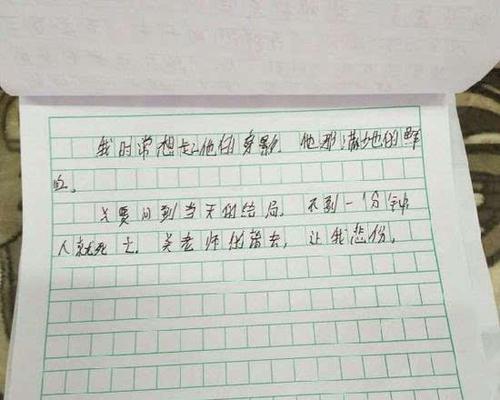 我时常想起他的身影 他那满地的鲜
血。
要问到当天的结局，不到一分钟
人就死 老师的 去，让我悲份。